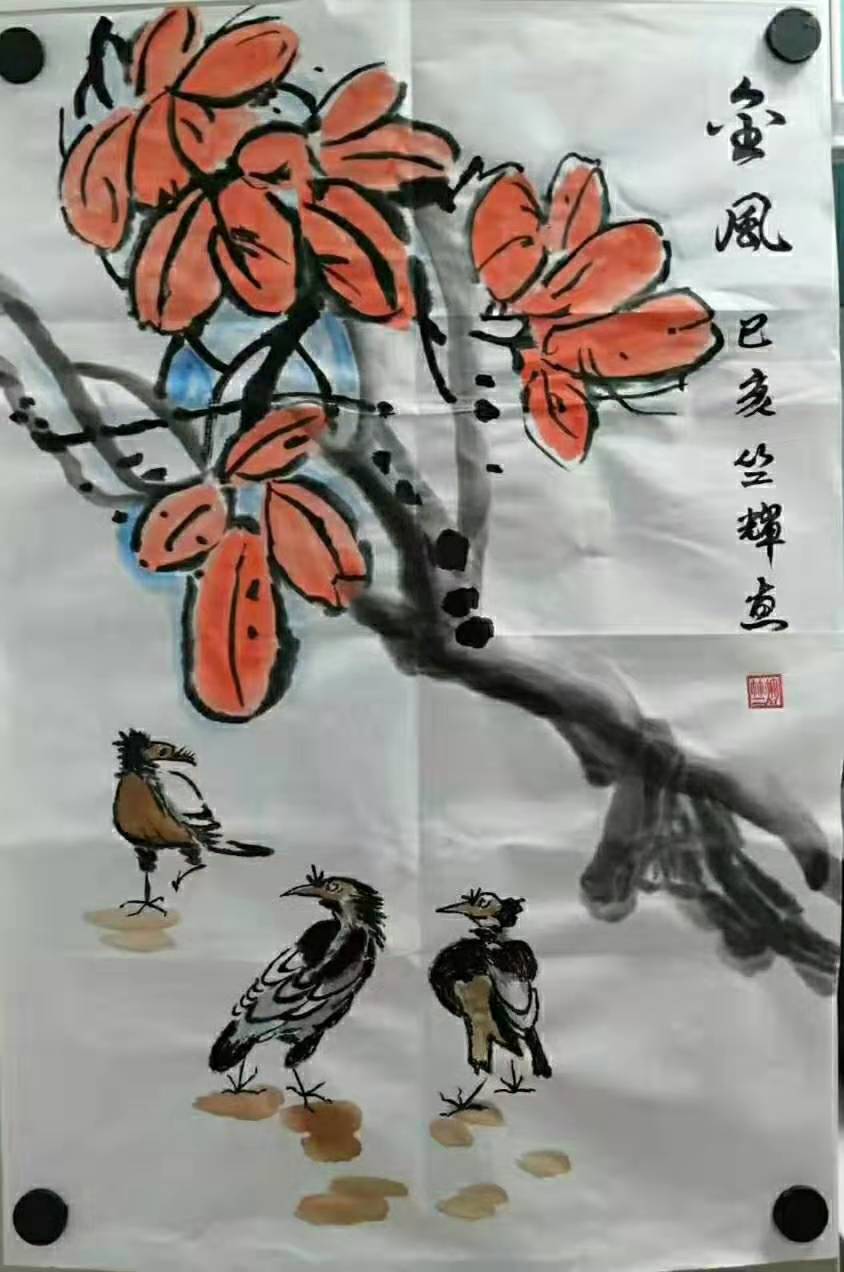 金風
己亥竺輝画